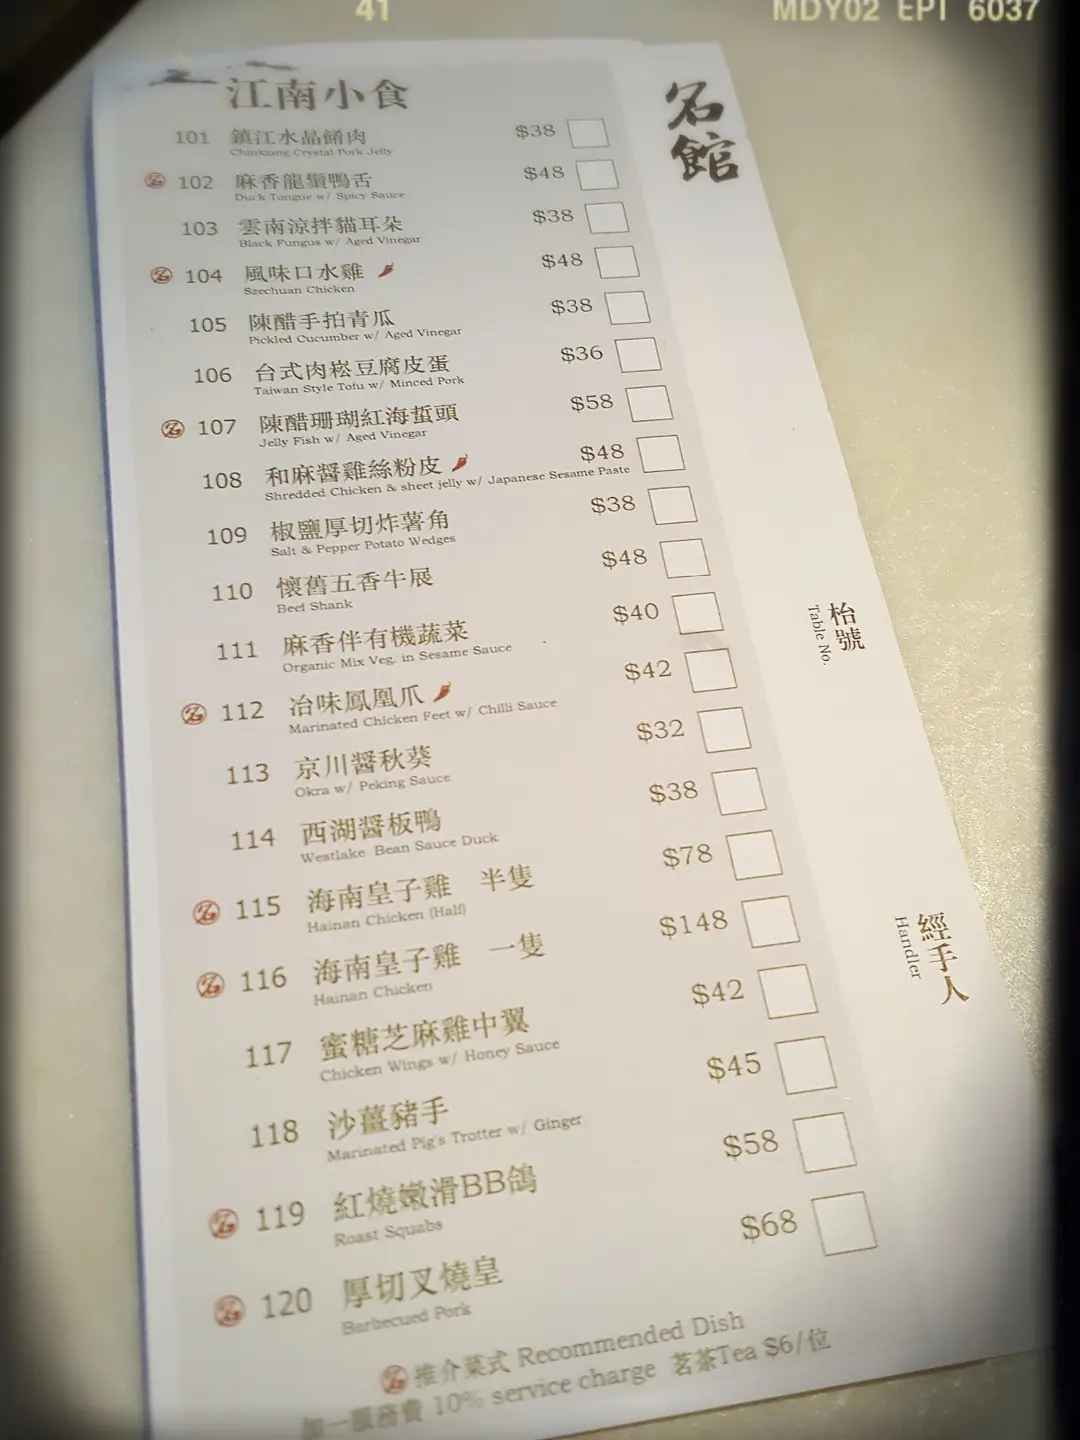 41
MDY02 EPI 6037
江南小食
名館
101 鎮江水晶餚肉 $38
Chinkiang Crystal Pork Jelly
名 102 麻香龍鬚鴨舌 $48
Duck Tongue w/ Spicy Sauce
103 雲南涼拌貓耳朵 $38
Black Fungus w/ Aged Vinegar
名 104 風味口水雞 $48
Szechuan Chicken
105 陳醋手拍青瓜 $38
Pickled Cucumber w/ Aged Vinegar
106 台式肉崧豆腐皮蛋 $36
Taiwan Style Tofu w/ Minced Pork
名 107 陳醋珊瑚紅海蜇頭 $58
Jelly Fish w/ Aged Vinegar
108 和麻醬雞絲粉皮 $48
Shredded Chicken & sheet jelly w/ Japanese Sesame Paste
109 椒鹽厚切炸薯角 $38
Salt & Pepper Potato Wedges
110 懷舊五香牛展 $48
Beef Shank
111 麻香伴有機蔬菜 $40
Organic Mix Veg. in Sesame Sauce
名 112 冶味鳳凰爪 $42
Marinated Chicken Feet w/ Chilli Sauce
113 京川醬秋葵 $32
Okra w/ Peking Sauce
114 西湖醬板鴨 $38
Westlake Bean Sauce Duck
名 115 海南皇子雞 半隻 $78
Hainan Chicken (Half)
名 116 海南皇子雞 一隻 $148
Hainan Chicken
117 蜜糖芝麻雞中翼 $42
Chicken Wings w/ Honey Sauce
118 沙薑豬手 $45
Marinated Pig's Trotter w/ Ginger
名 119 紅燒嫩滑BB鴿 $58
Roast Squabs
名 120 厚切叉燒皇 $68
Barbecued Pork
名 推介菜式 Recommended Dish
加一服務費 10% service charge 茗茶Tea $6/位
枱號
Table No.
經手人
Handler